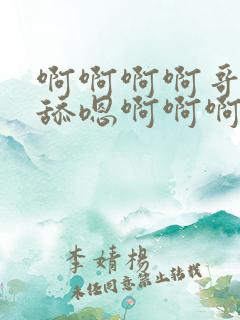 啊啊啊啊哥
舔嗯啊啊啊
李婧杨
未经同意禁止转载